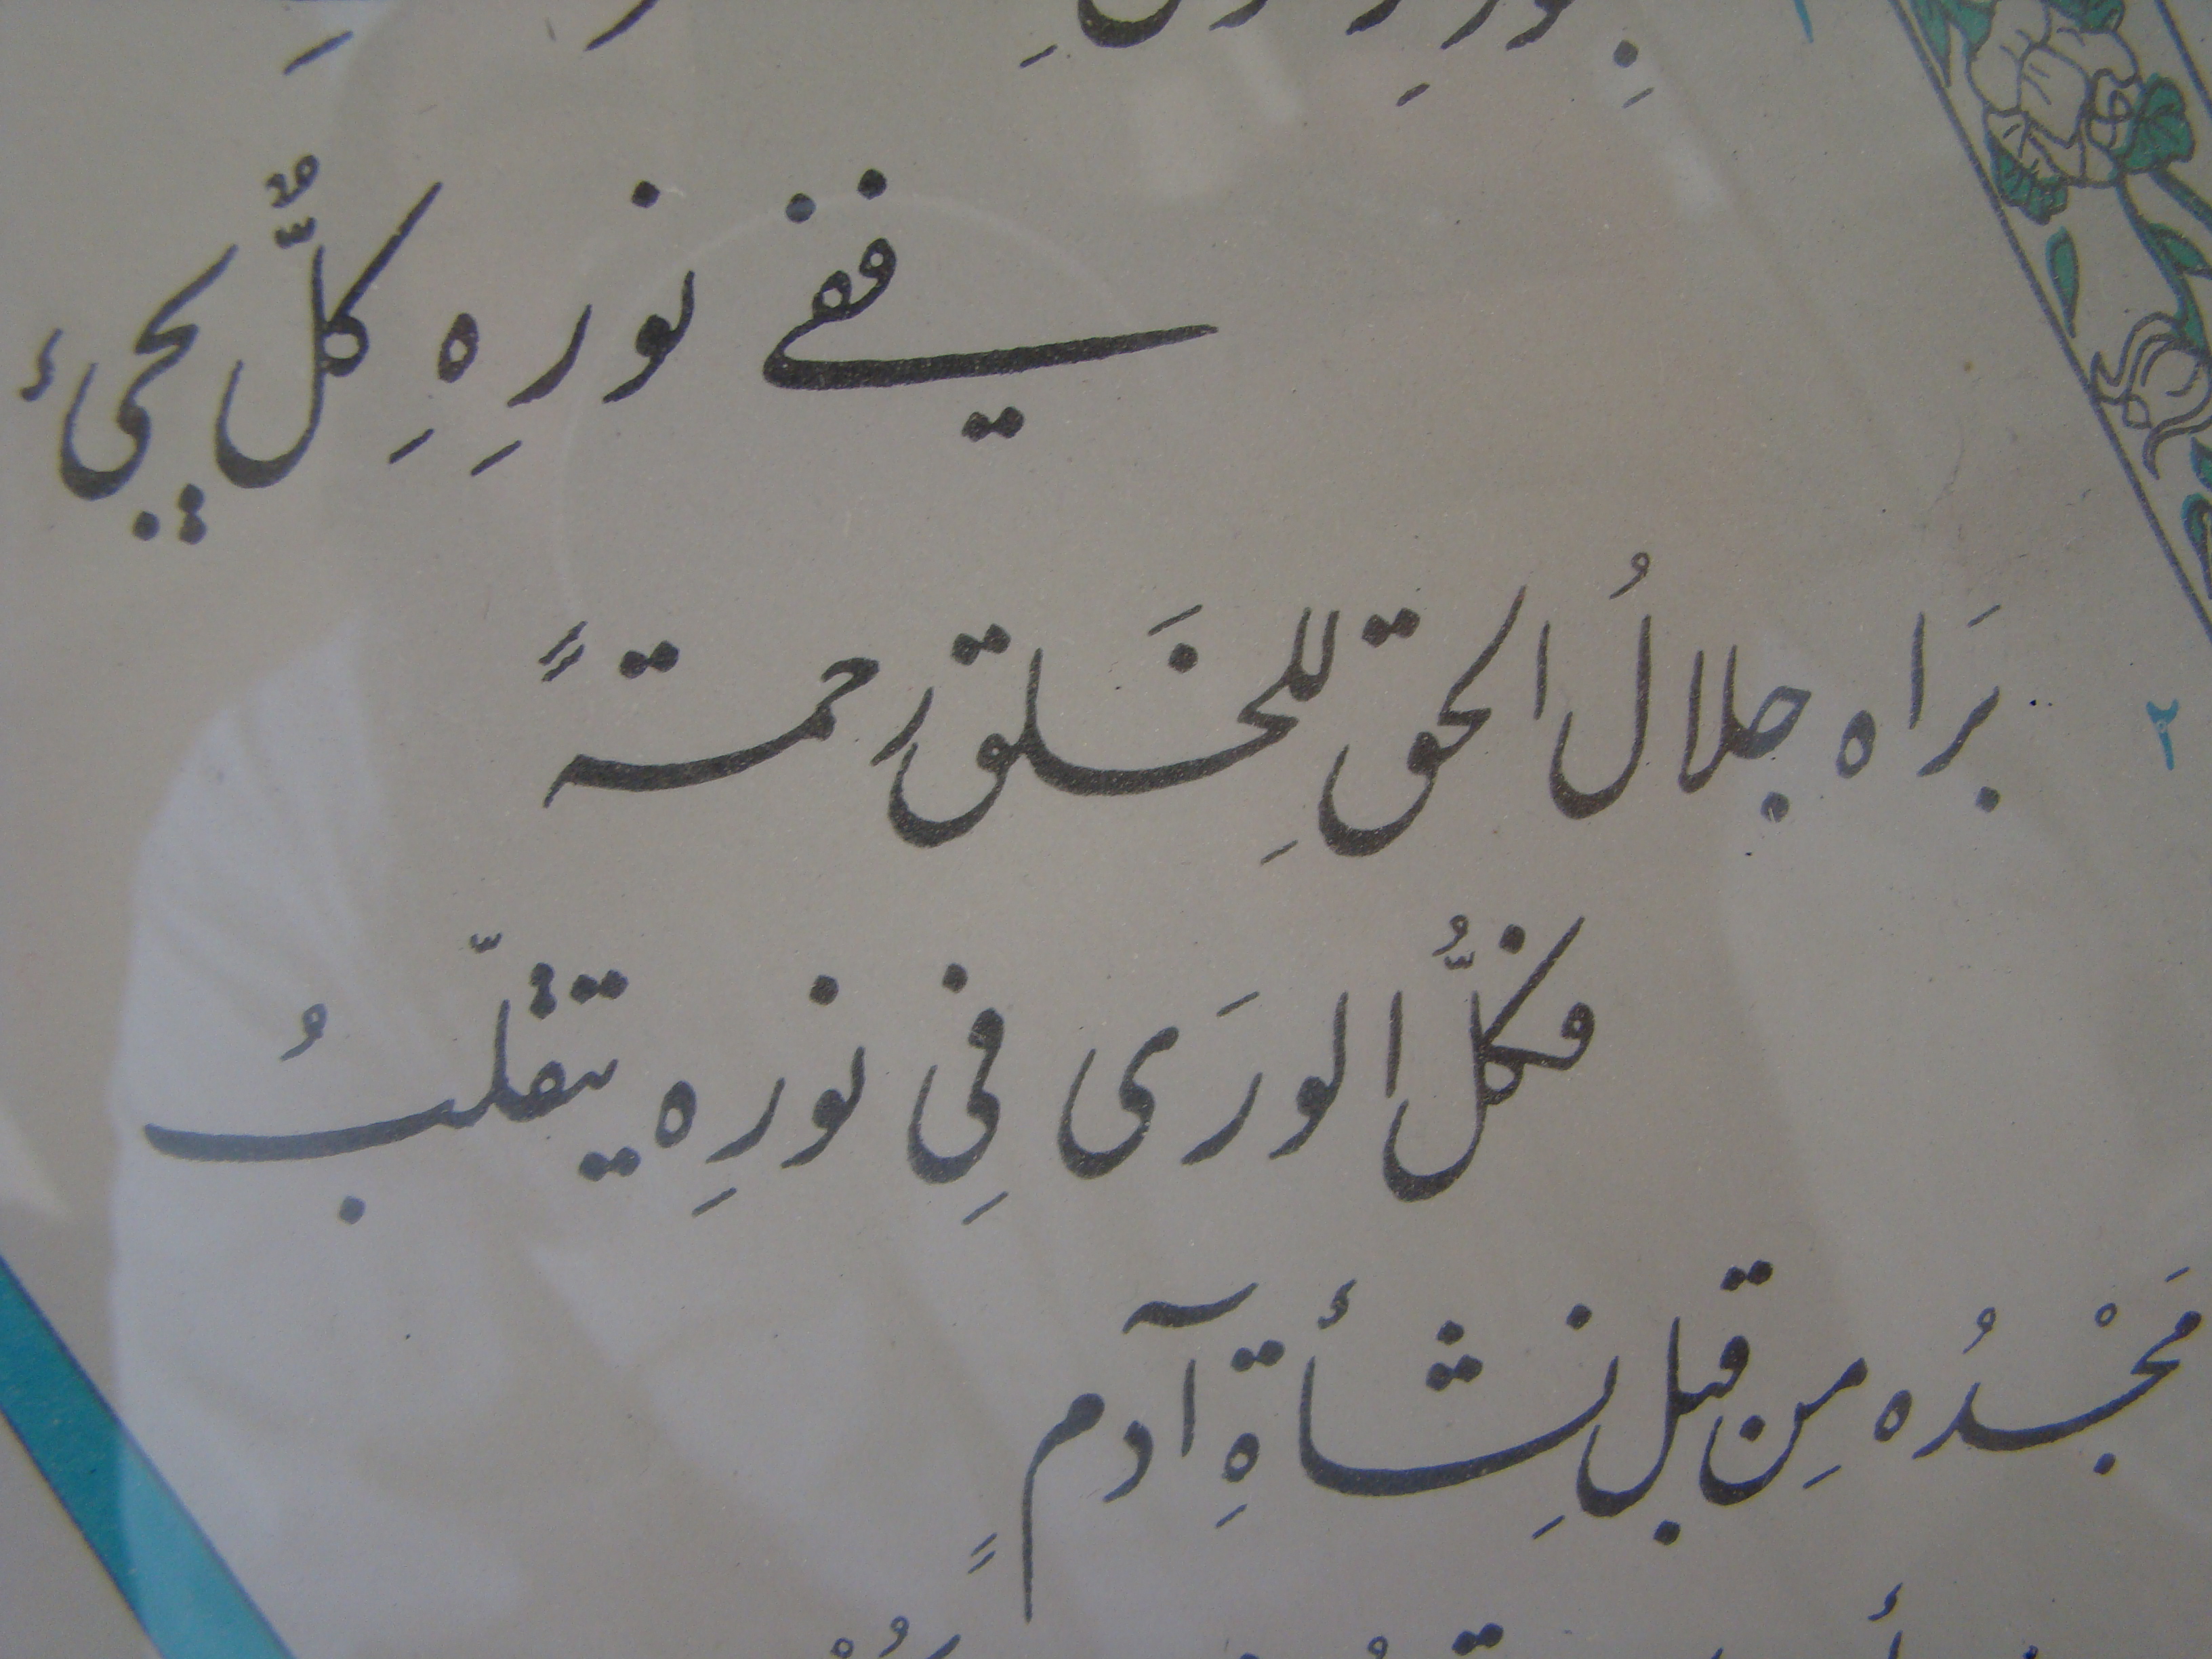 ففي نورِهِ كلٌّ يجيء
٢ بَراه جلالُ الحق للِخَلق رحمةً
فكلُّ الورَى فِي نورِه يتقلّبُ
مَجْدُه مِن قبلِ نشأةِ آدمٍ